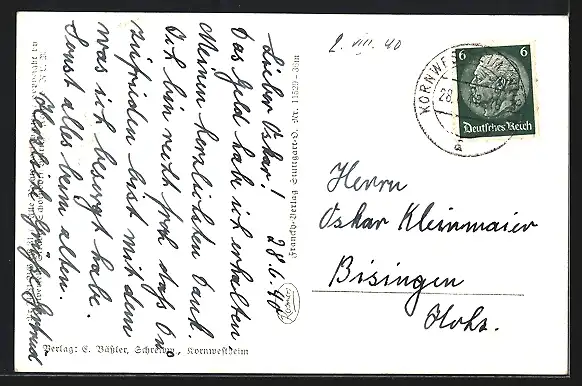 2. VIII. 40
KORNWES
28.
6
6
Deutsches Reich
Herrn
Oskar Kleinmaier
Bisingen
Hohz.
28.6.40
Lieber Oskar!
Das Geld habe ich erhalten
Meinen herzlichsten Dank.
Ich bin recht froh daß Du
zufrieden bist mit dem
was ich besorgt habe.
Sonst alles beim alten.
Herzliche Grüße Gertrud
Franckh-Verlag Stuttgart-O. Nr. 11529
Verlag: C. Bäßler, Schreibw., Kornwestheim